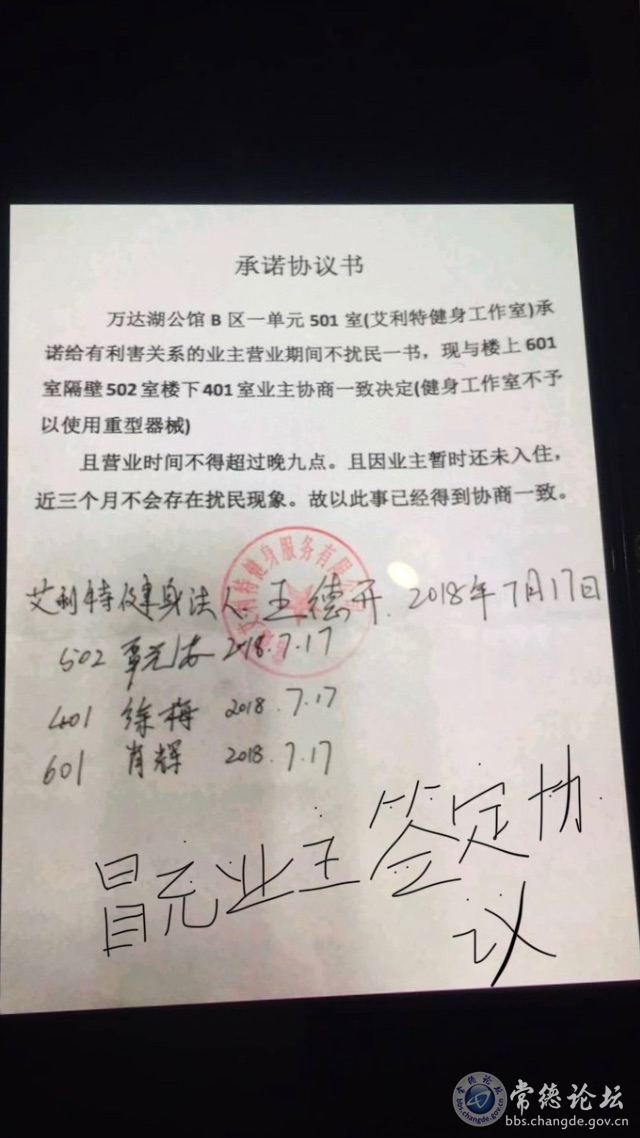 承诺协议书
万达湖公馆 B 区一单元 501 室(艾利特健身工作室)承
诺给有利害关系的业主营业期间不扰民一书，现与楼上 601
室隔壁 502 室楼下 401 室业主协商一致决定(健身工作室不予
以使用重型器械)
且营业时间不得超过晚九点。且因业主暂时还未入住，
近三个月不会存在扰民现象。故以此事已经得到协商一致。
艾利特健身服务有限
艾利特健身法人 王德开. 2018年7月17日
502 2018.7.17
401 徐梅 2018.7.17
601 肖辉 2018.7.17
冒充业主签定协
议
常德论坛
bbs.changde.gov.cn